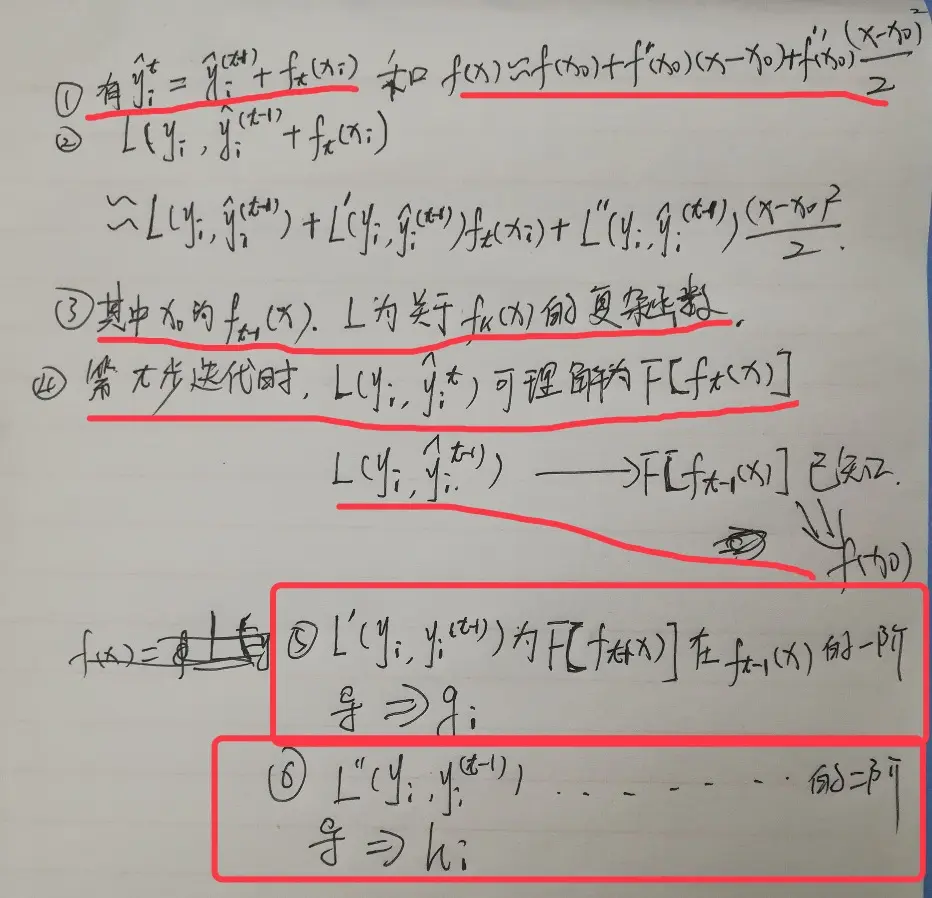 ① 有 ŷᵢᵗ = ŷᵢ⁽ᵗ⁻¹⁾ + fₜ(xᵢ) 和 f(x) ≈ f(x₀) + f'(x₀)(x-x₀) + f''(x₀) (x-x₀)²/2
② L(yᵢ, ŷᵢ⁽ᵗ⁻¹⁾ + fₜ(xᵢ)
≈ L(yᵢ, ŷᵢ⁽ᵗ⁻¹⁾) + L'(yᵢ, ŷᵢ⁽ᵗ⁻¹⁾)fₜ(xᵢ) + L''(yᵢ, ŷᵢ⁽ᵗ⁻¹⁾) (x-x₀)²/2.
③ 其中 x₀ 的 fₜ₋₁(x). L 为关于 fₖ(x) 的复杂函数.
④ 第 t 步迭代时, L(yᵢ, ŷᵢᵗ) 可理解为 F[fₜ(x)]
L(yᵢ, ŷᵢᵗ⁻¹) → F[fₜ₋₁(x)] 已知.
f(x₀)
f(x) =
⑤ L'(yᵢ, yᵢ⁽ᵗ⁻¹⁾) 为 F[fₜ₋₁(x)] 在 fₜ₋₁(x) 的一阶
导 ⇒ gᵢ
⑥ L''(yᵢ, yᵢ⁽ᵗ⁻¹⁾) . . - - - - . 的二阶
导 ⇒ hᵢ